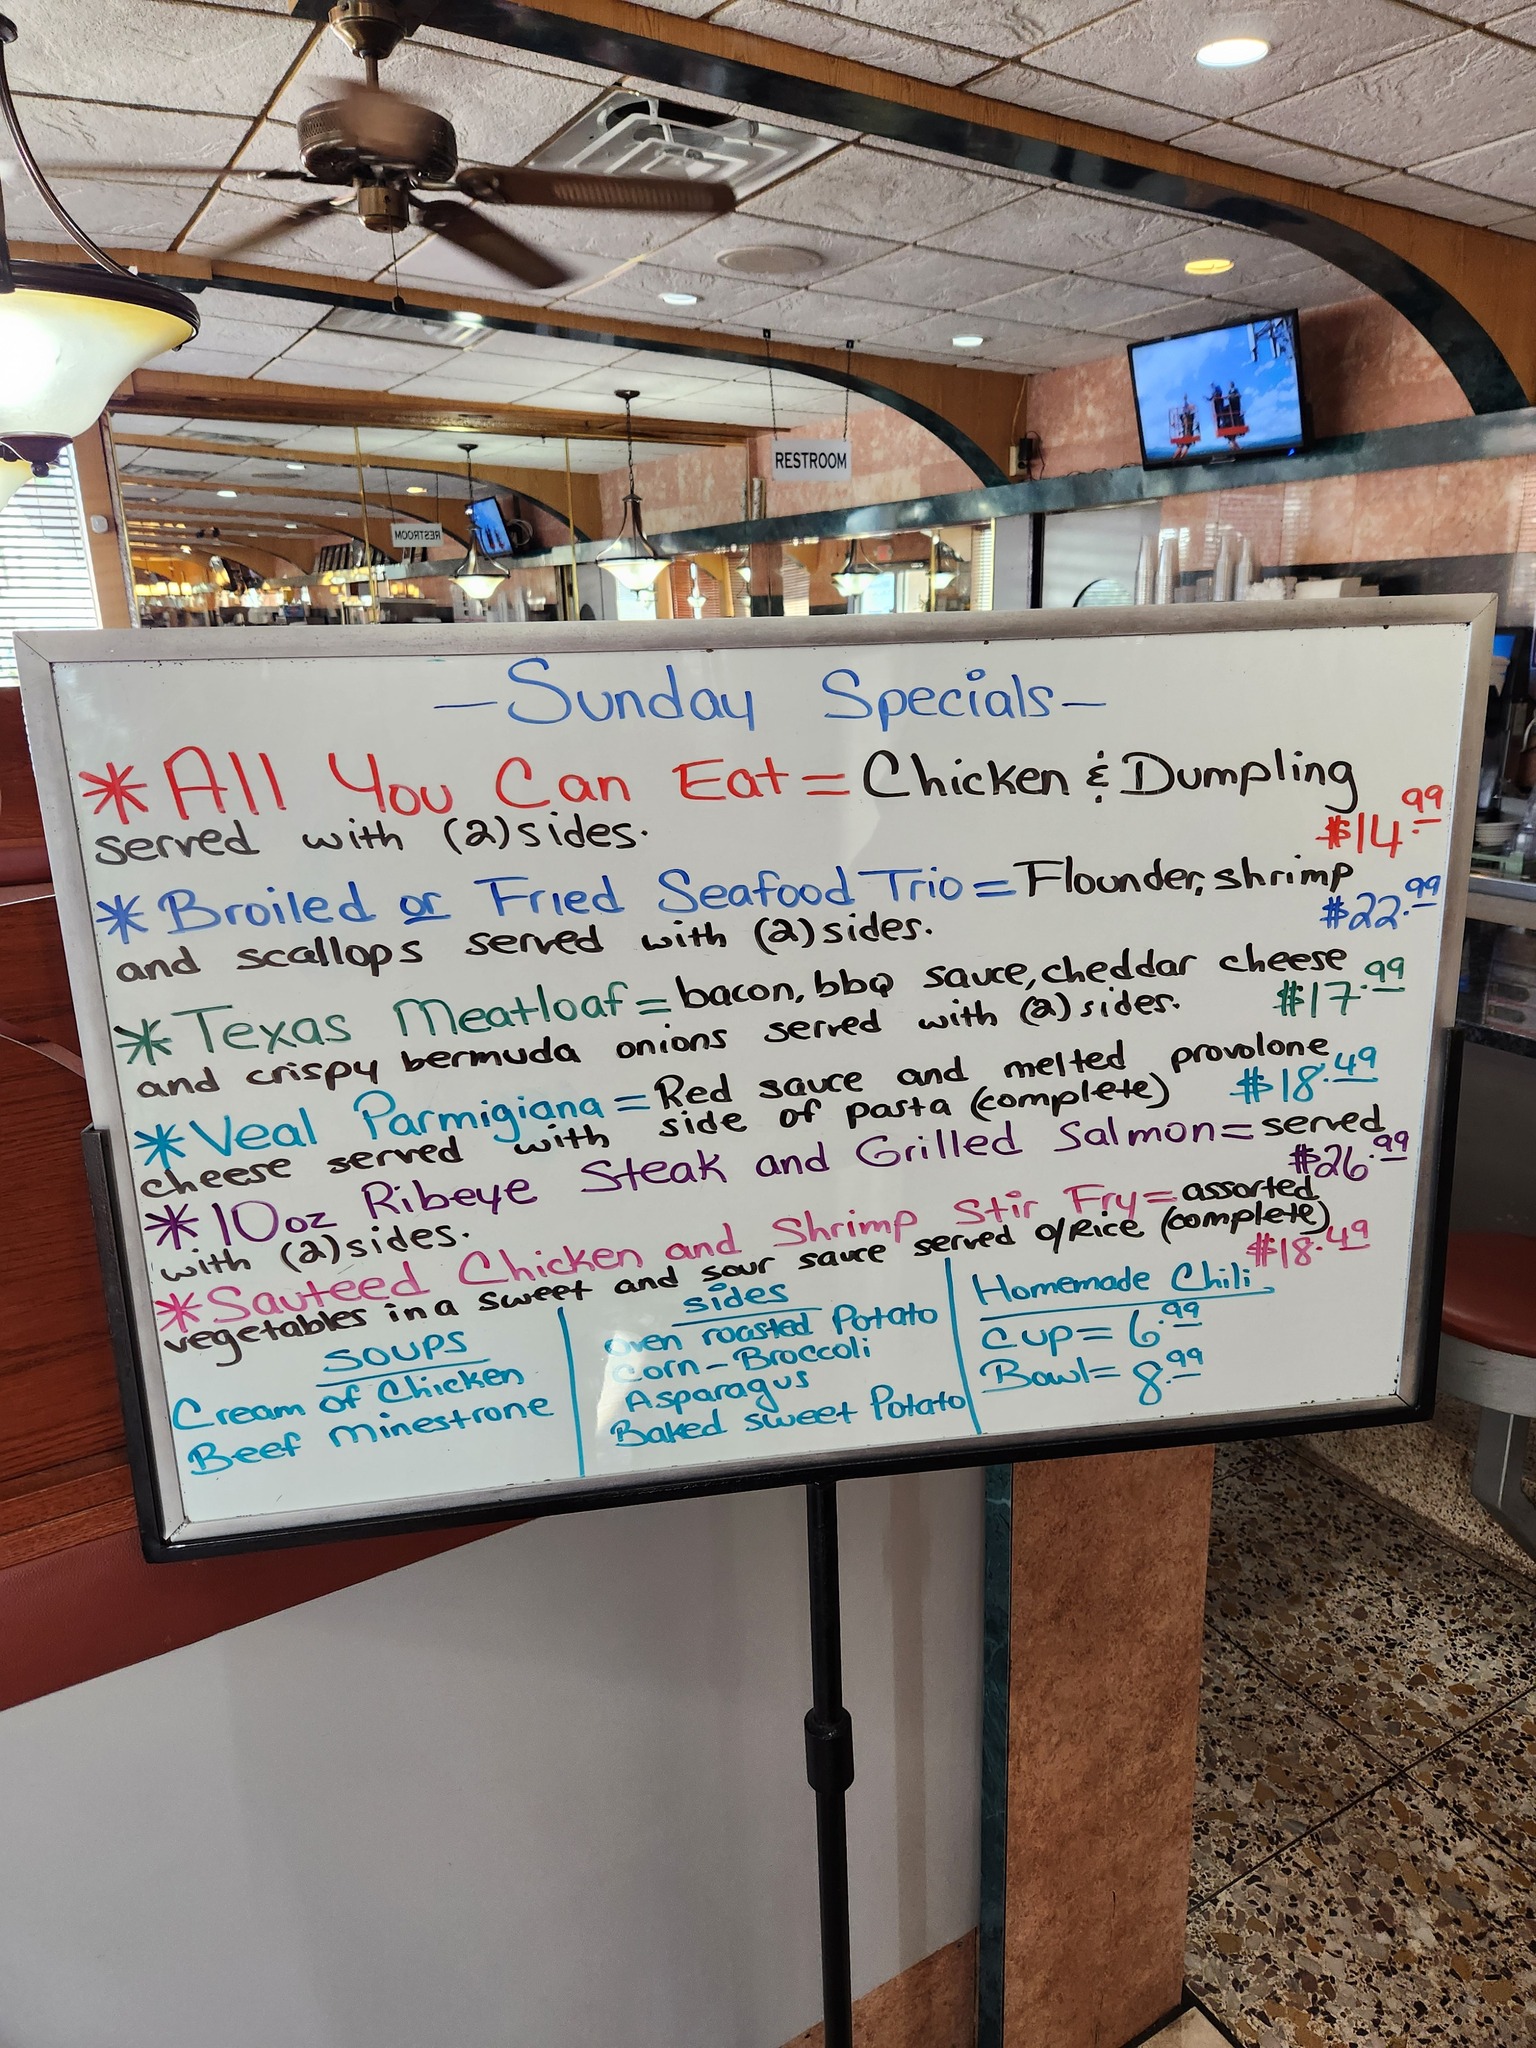 RESTROOM
RESTROOM
-Sunday Specials-
*All You Can Eat = Chicken & Dumpling
served with (2) sides.
$14.99
*Broiled or Fried Seafood Trio = Flounder, shrimp
and scallops served with (2) sides.
$22.99
*Texas Meatloaf = bacon, bbq sauce, cheddar cheese
and crispy bermuda onions served with (2) sides.
$17.99
*Veal Parmigiana = Red sauce and melted provolone
cheese served with side of pasta (complete)
$18.49
*10oz Ribeye Steak and Grilled Salmon = served
with (2) sides.
$26.99
*Sauteed Chicken and Shrimp Stir Fry = assorted
vegetables in a sweet and sour sauce served o/Rice (complete)
$18.49
SOUPS
Cream of Chicken
Beef Minestrone
sides
oven roasted Potato
corn - Broccoli
Asparagus
Baked sweet Potato
Homemade Chili
Cup = 6.99
Bowl = 8.99